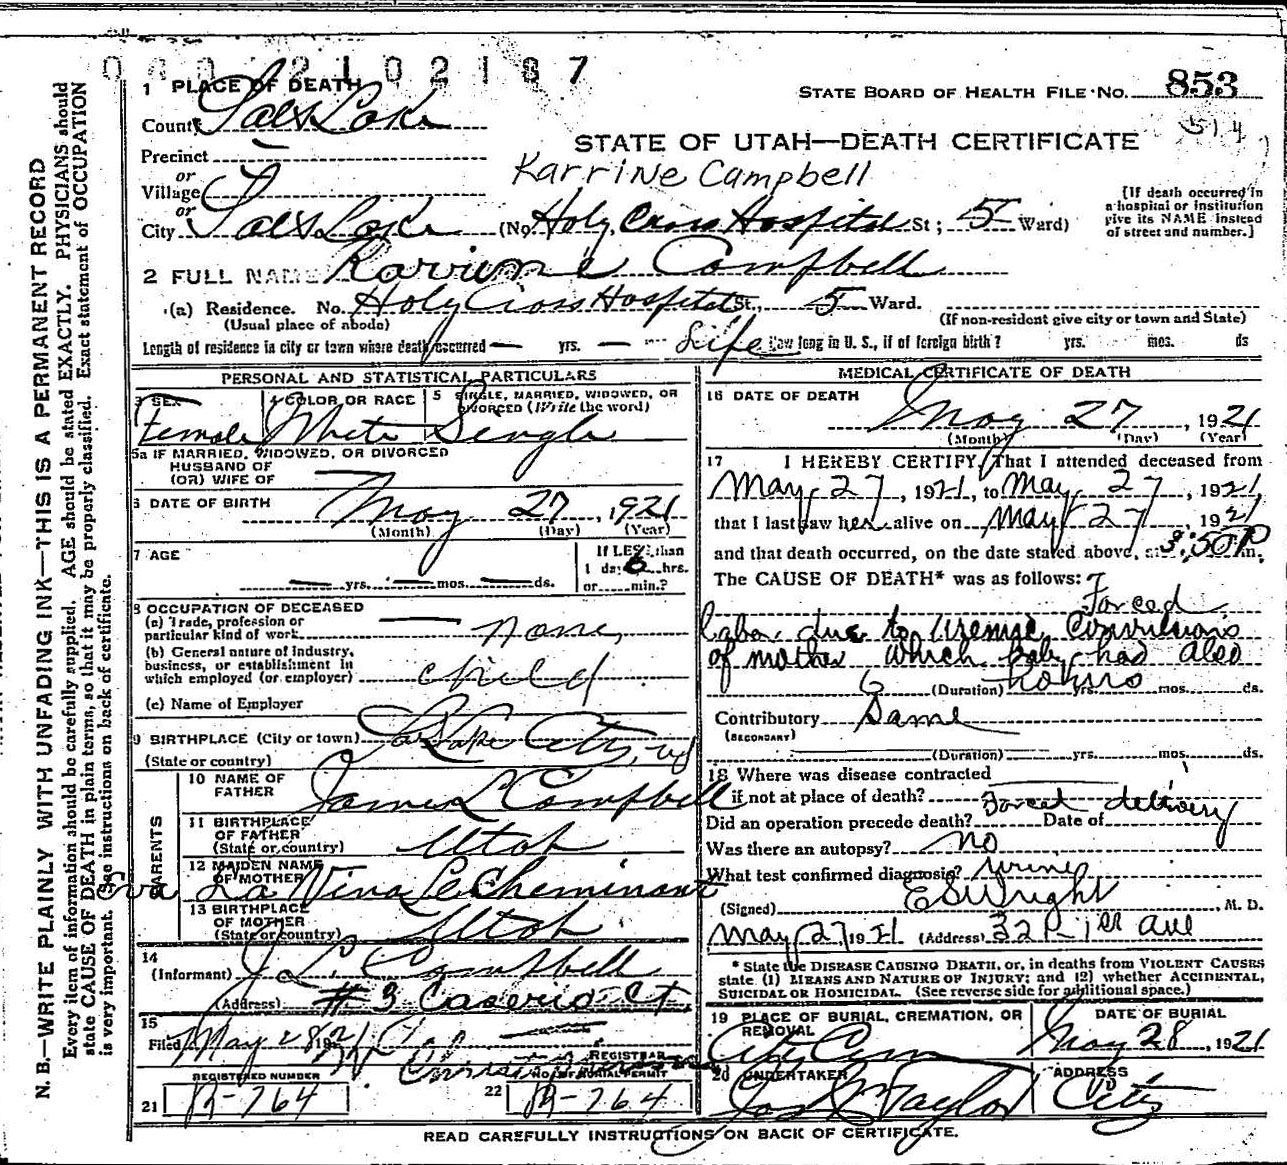 N. B.—WRITE PLAINLY WITH UNFADING INK—THIS IS A PERMANENT RECORD
Every item of information should be carefully supplied. AGE should be stated EXACTLY. PHYSICIANS should
state CAUSE OF DEATH in plain terms, so that it may be properly classified. Exact statement of OCCUPATION
is very important. See instructions on back of certificate.
2102187
1 PLACE OF DEATH
STATE BOARD OF HEALTH FILE No. 853
County Salt Lake
STATE OF UTAH—DEATH CERTIFICATE
Precinct
Karrine Campbell
or
Village
or
City Salt Lake (No. Holy Cross Hospital St; 5 Ward)
[If death occurred in
a hospital or institution
give its NAME instead
of street and number.]
2 FULL NAME Karrine Campbell
(a) Residence. No. Holy Cross Hospital St., 5 Ward.
(Usual place of abode)
(If non-resident give city or town and State)
Length of residence in city or town where death occurred — yrs. — mos. Life How long in U. S., if of foreign birth? yrs. mos. ds
PERSONAL AND STATISTICAL PARTICULARS
3 SEX Female
4 COLOR OR RACE White
5 SINGLE, MARRIED, WIDOWED, OR
DIVORCED (Write the word) Single
5a IF MARRIED, WIDOWED, OR DIVORCED
HUSBAND OF
(OR) WIFE OF
6 DATE OF BIRTH May 27, 1921
(Month) (Day) (Year)
7 AGE
— yrs. — mos. — ds.
If LESS than
1 day 6 hrs.
or min.?
8 OCCUPATION OF DECEASED
(a) Trade, profession or
particular kind of work none
(b) General nature of industry,
business, or establishment in
which employed (or employer) child
(c) Name of Employer
9 BIRTHPLACE (City or town) S L Lake City, ut
(State or country)
PARENTS
10 NAME OF
FATHER James L Campbell
11 BIRTHPLACE
OF FATHER
(State or country) Utah
12 MAIDEN NAME
OF MOTHER Eva La Vina LeCheminant
13 BIRTHPLACE
OF MOTHER
(State or country) Utah
14
(Informant) J. L. Campbell
(Address) # 3 Ct.
15
Filed May 28 1921
REGISTRAR
REGISTERED NUMBER
NO. OF BURIAL PERMIT
21 R-764
22 R-764
MEDICAL CERTIFICATE OF DEATH
16 DATE OF DEATH
May 27, 1921
(Month) (Day) (Year)
17 I HEREBY CERTIFY, That I attended deceased from
May 27, 1921, to May 27, 1921,
that I last saw her alive on May 27, 1921
and that death occurred, on the date stated above, at 3:50 P m.
The CAUSE OF DEATH* was as follows:
Forced
labor due to uremic convulsions
of mother which baby had also
6 (Duration) hours yrs. mos. ds.
Contributory Same
(SECONDARY)
(Duration) yrs. mos. ds.
18 Where was disease contracted
if not at place of death? Forced delivery
Did an operation precede death? Date of
Was there an autopsy? no
What test confirmed diagnosis? urine
(Signed) E S Wright M. D.
May 27 1921 (Address) 1st Ave
* State the DISEASE CAUSING DEATH, or, in deaths from VIOLENT CAUSES
state (1) MEANS AND NATURE OF INJURY; and (2) whether ACCIDENTAL,
SUICIDAL OR HOMICIDAL. (See reverse side for additional space.)
19 PLACE OF BURIAL, CREMATION, OR
REMOVAL City Cem
DATE OF BURIAL
May 28, 1921
20 UNDERTAKER Jos Wm Taylor
ADDRESS City
READ CAREFULLY INSTRUCTIONS ON BACK OF CERTIFICATE.